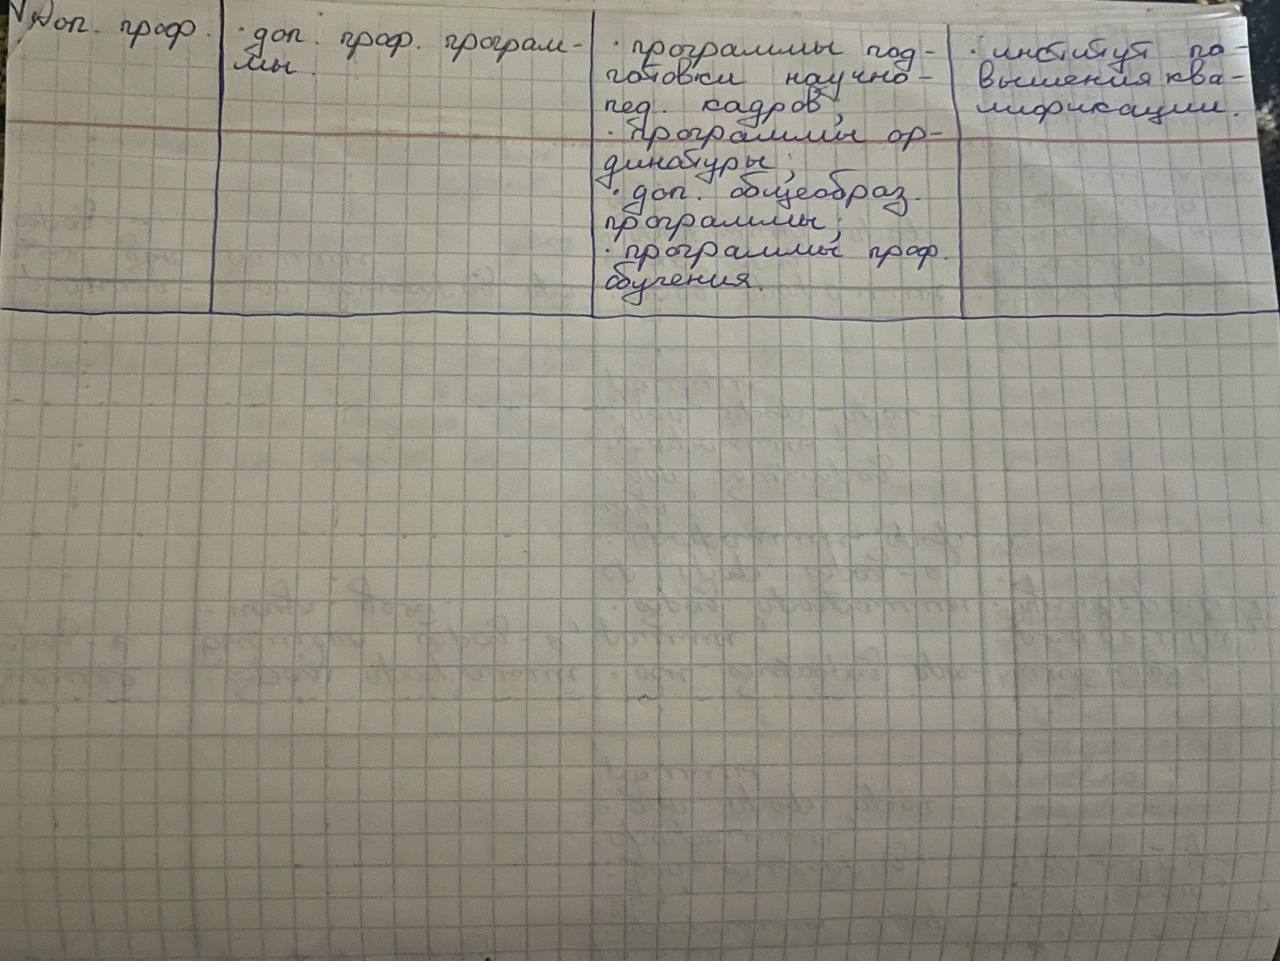 Доп. проф.
· доп. проф. програм-
мы.
· программы под-
готовки научно-
пед. кадров;
· программы ор-
динатуры;
· доп. общеобраз.
программы;
· программы проф.
обучения.
· институт по-
вышения ква-
лификации.